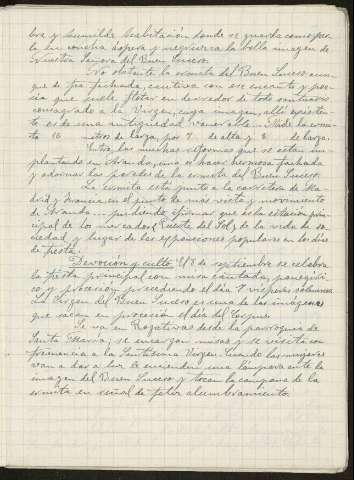 bre y humilde habitación donde se guarda como per-
la en concha áspera y negruzca la bella imagen de
Nuestra Señora del Buen Suceso.
No obstante la ermita del Buen Suceso aun-
que de fea fachada, cautiva con ese encanto y poe-
sía que suele flotar en derredor de todo santuario
consagrado a la Virgen, cuya imagen, allí existen-
te es de una antigüedad venerable. Mide la ermi-
ta 16 metros de larga, por 7 de alta y 8 de larga.
Entre las muchas reformas que se están im-
plantando en Aranda, una es hacer hermosa fachada
y adornar las paredes de la ermita del Buen Suceso.
La ermita está junto a la carretera de Ma-
drid y Francia, en el punto de más vista y movimiento
de Aranda... pudiendo afirmar que es la estación prin-
cipal de los mercados, Puente del Sol, y de la vida de so-
ciedad y lugar de las expansiones populares en los días
de fiesta.
Devoción y culto. El 8 de septiembre se celebra
la fiesta principal con misa cantada, panegíri-
co y procesión precediendo el día 7 vísperas solemnes.
La Virgen del Buen Suceso es una de las imágenes
que sacan en procesión el día del Corpus.
Se va en Rogativas desde la parroquia de
Santa María, se encargan misas y se visita con
frecuencia a la Santísima Virgen. Cuando las mujeres
van a dar a luz se enciende una lámpara ante la
imagen del Buen Suceso y tocan la campana de la
ermita en señal de feliz alumbramiento.